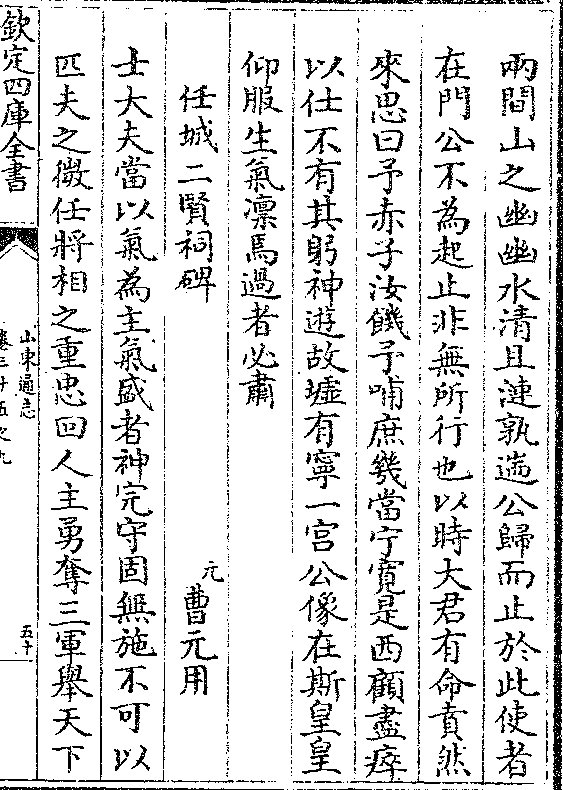 兩間山之幽幽水清且漣孰遄公歸而止於此使者
在門公不為起止非無所行也以時大君有命賁然
來思曰予赤子汝饑予哺庶幾當宁寛是西顧盡瘁
以仕不有其躬神遊故墟有寧一宫公像在斯皇皇
仰服生氣凛焉過者必肅
任城二賢祠碑　元曹元用
士大夫當以氣為主氣盛者神完守固無施不可以
匹夫之微任將相之重忠回人主勇奪三軍舉天下
欽定四庫全書
山東通志
卷三十五之九
五十